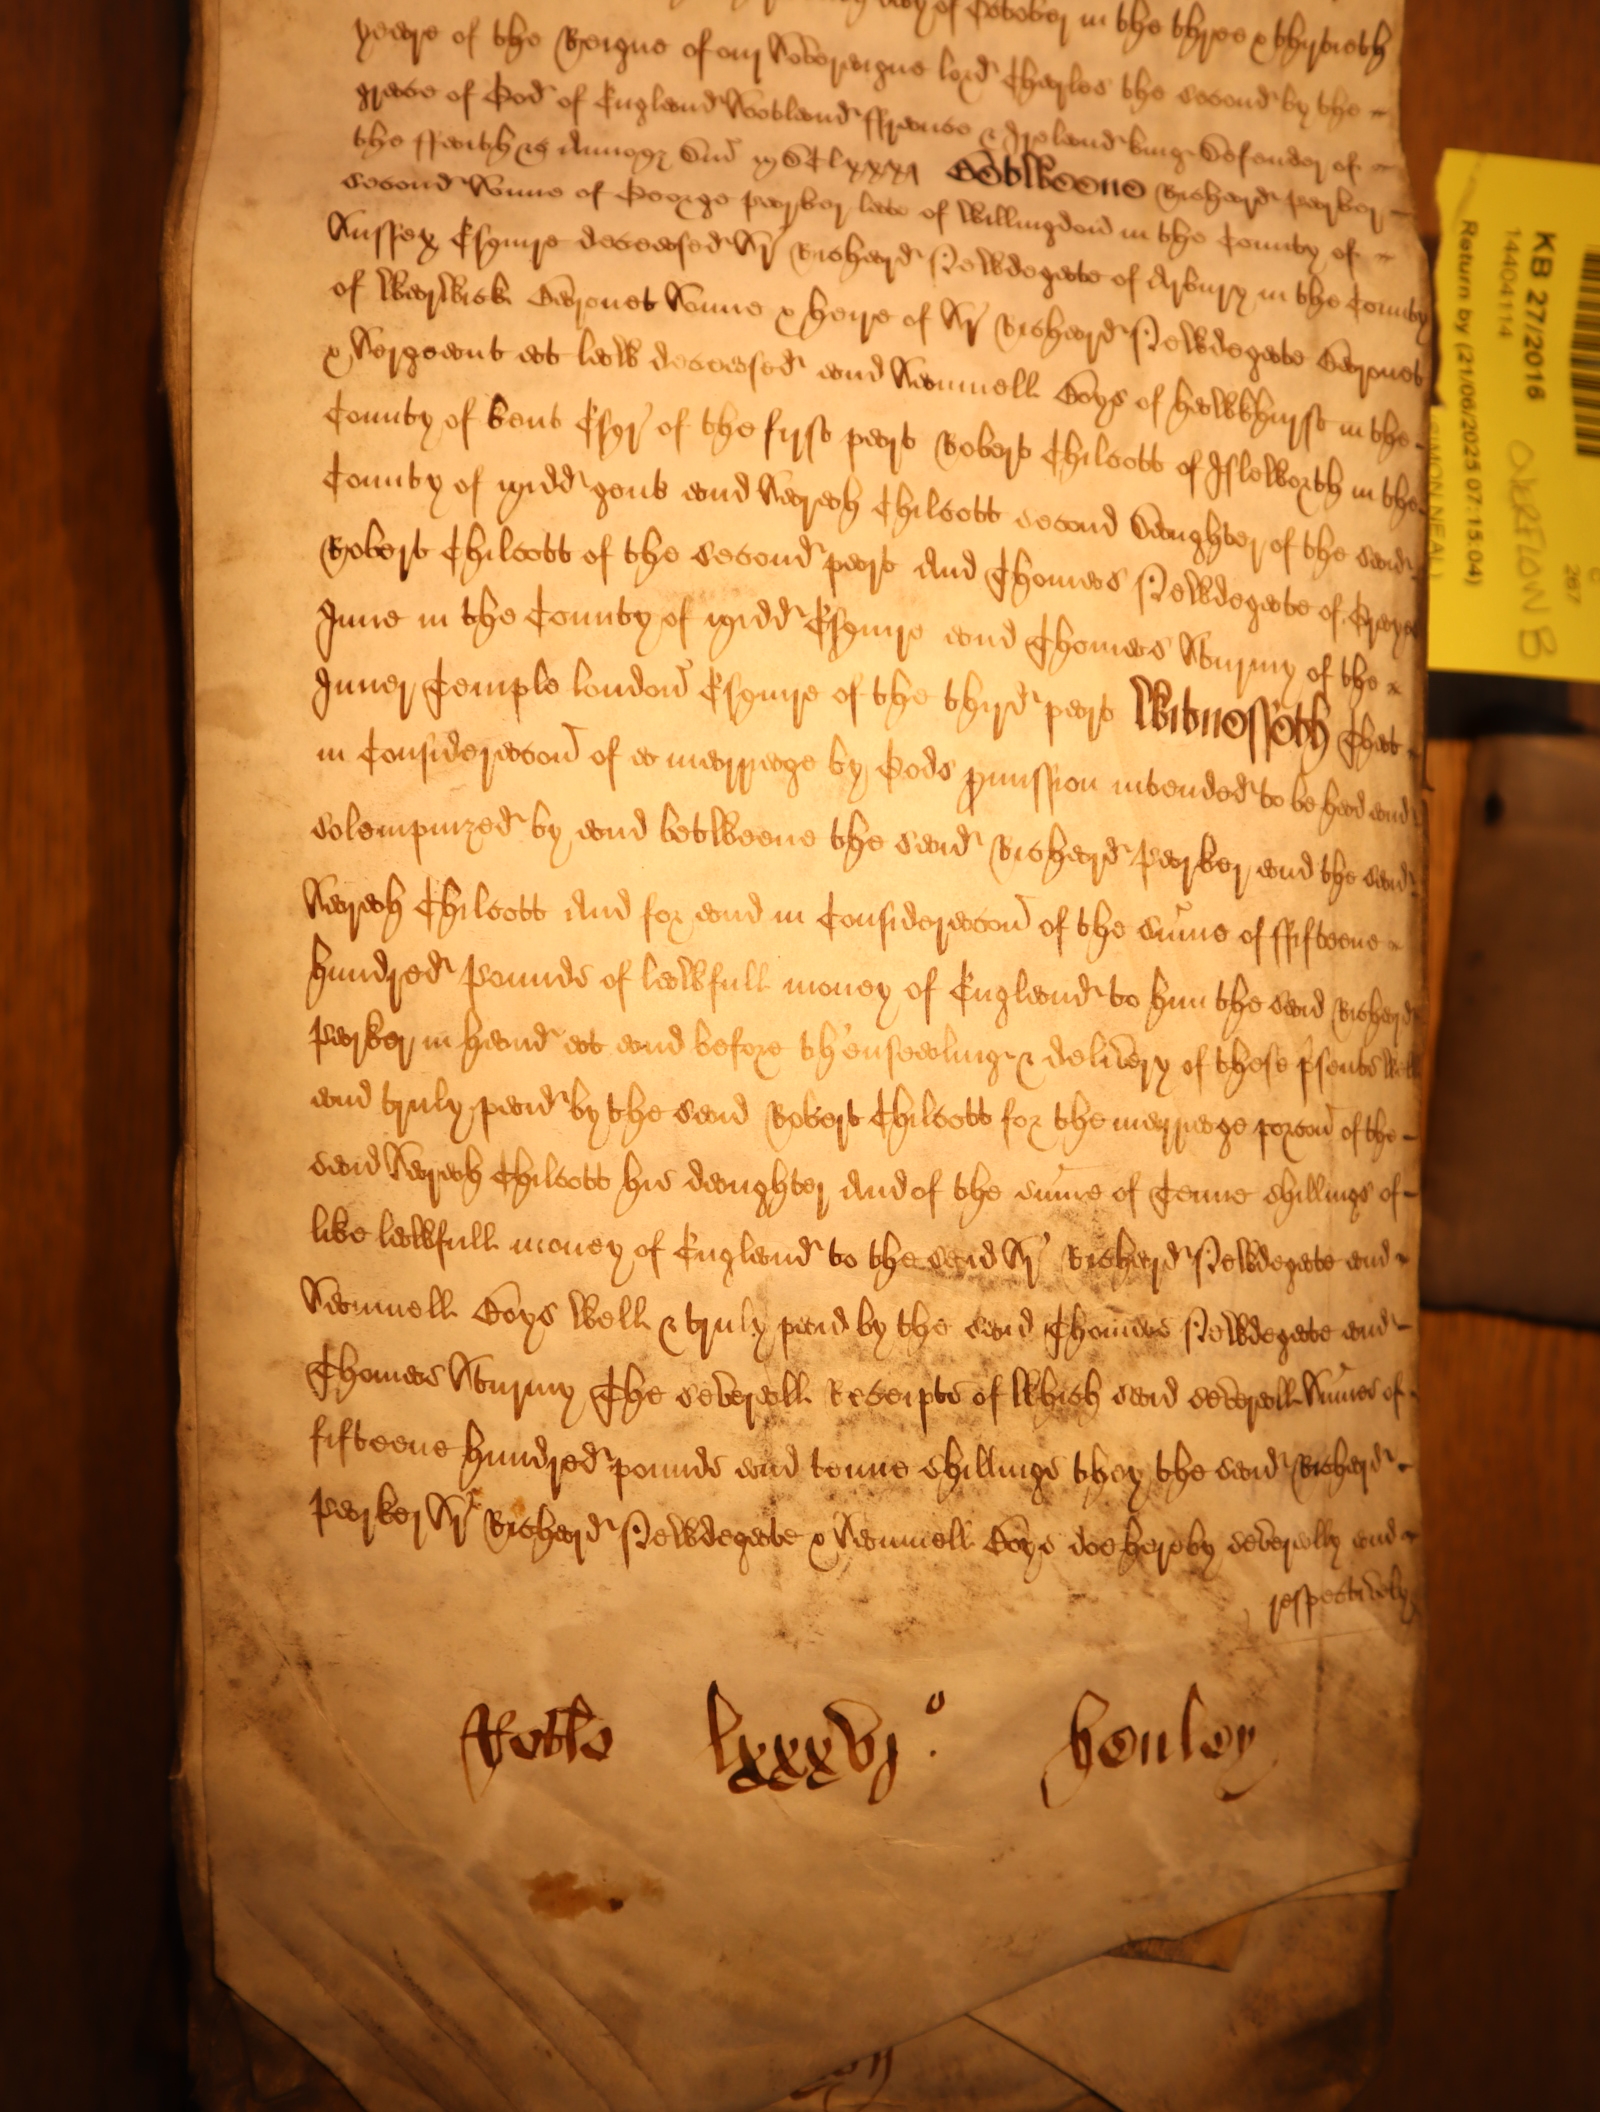 day of October in the three & thirtieth
yeare of the Reigne of our Soveraigne lord Charles the second by the
grace of God of England Scotland ffrance & Ireland king Defender of
the ffaith &c Annoq Dni MDClxxxi Betweene Richard Parker
second Sonne of George Parker late of Willingdon in the County of
Sussex Esquire deceased Sr Richard Newdegate of Arbury in the County
of Warwick Baronet Sonne & heire of Sr Richard Newdegate Baronet
& Sergeant at law deceased and Samuell Boys of Hawkhurst in the
County of Kent Esqr of the first part Robert Chilcott of Isleworth in the
County of Midd gent and Sarah Chilcott second Daughter of the said
Robert Chilcott of the second part And Thomas Newdegate of Grayes
Inne in the County of Midd Esquire and Thomas Sturmy of the
Inner Temple london Esquire of the third part Witnesseth That
in Consideracon of a marriage by Gods pmission intended to be had and
solempnized by and betweene the said Richard Parker and the said
Sarah Chilcott And for and in Consideracon of the sume of ffifteene
hundred Pounds of lawfull money of England to him the said Richard
Parker in hand at and before th'ensealing & delivery of these psents well
and truly paid by the said Robert Chilcott for the marriage porcon of the
said Sarah Chilcott his daughter And of the sume of Tenne shillings of
like lawfull money of England to the said Sr Richard Newdegate and
Samuell Boys well & truly paid by the said Thomas Newdegate and
Thomas Sturmy The severall Receipts of which said severall Sumes of
fifteene hundred pounds and tenne shillings they the said Richard
Parker Sr Richard Newdegate & Samuell Boys doe hereby severally and
respectively
Rotlo lxxxvjo. Henley
KB 27/2016
14404114
Return by (21/06/2025 07:15:04)
SIMON NEAL
OVERFLOW B
C
267